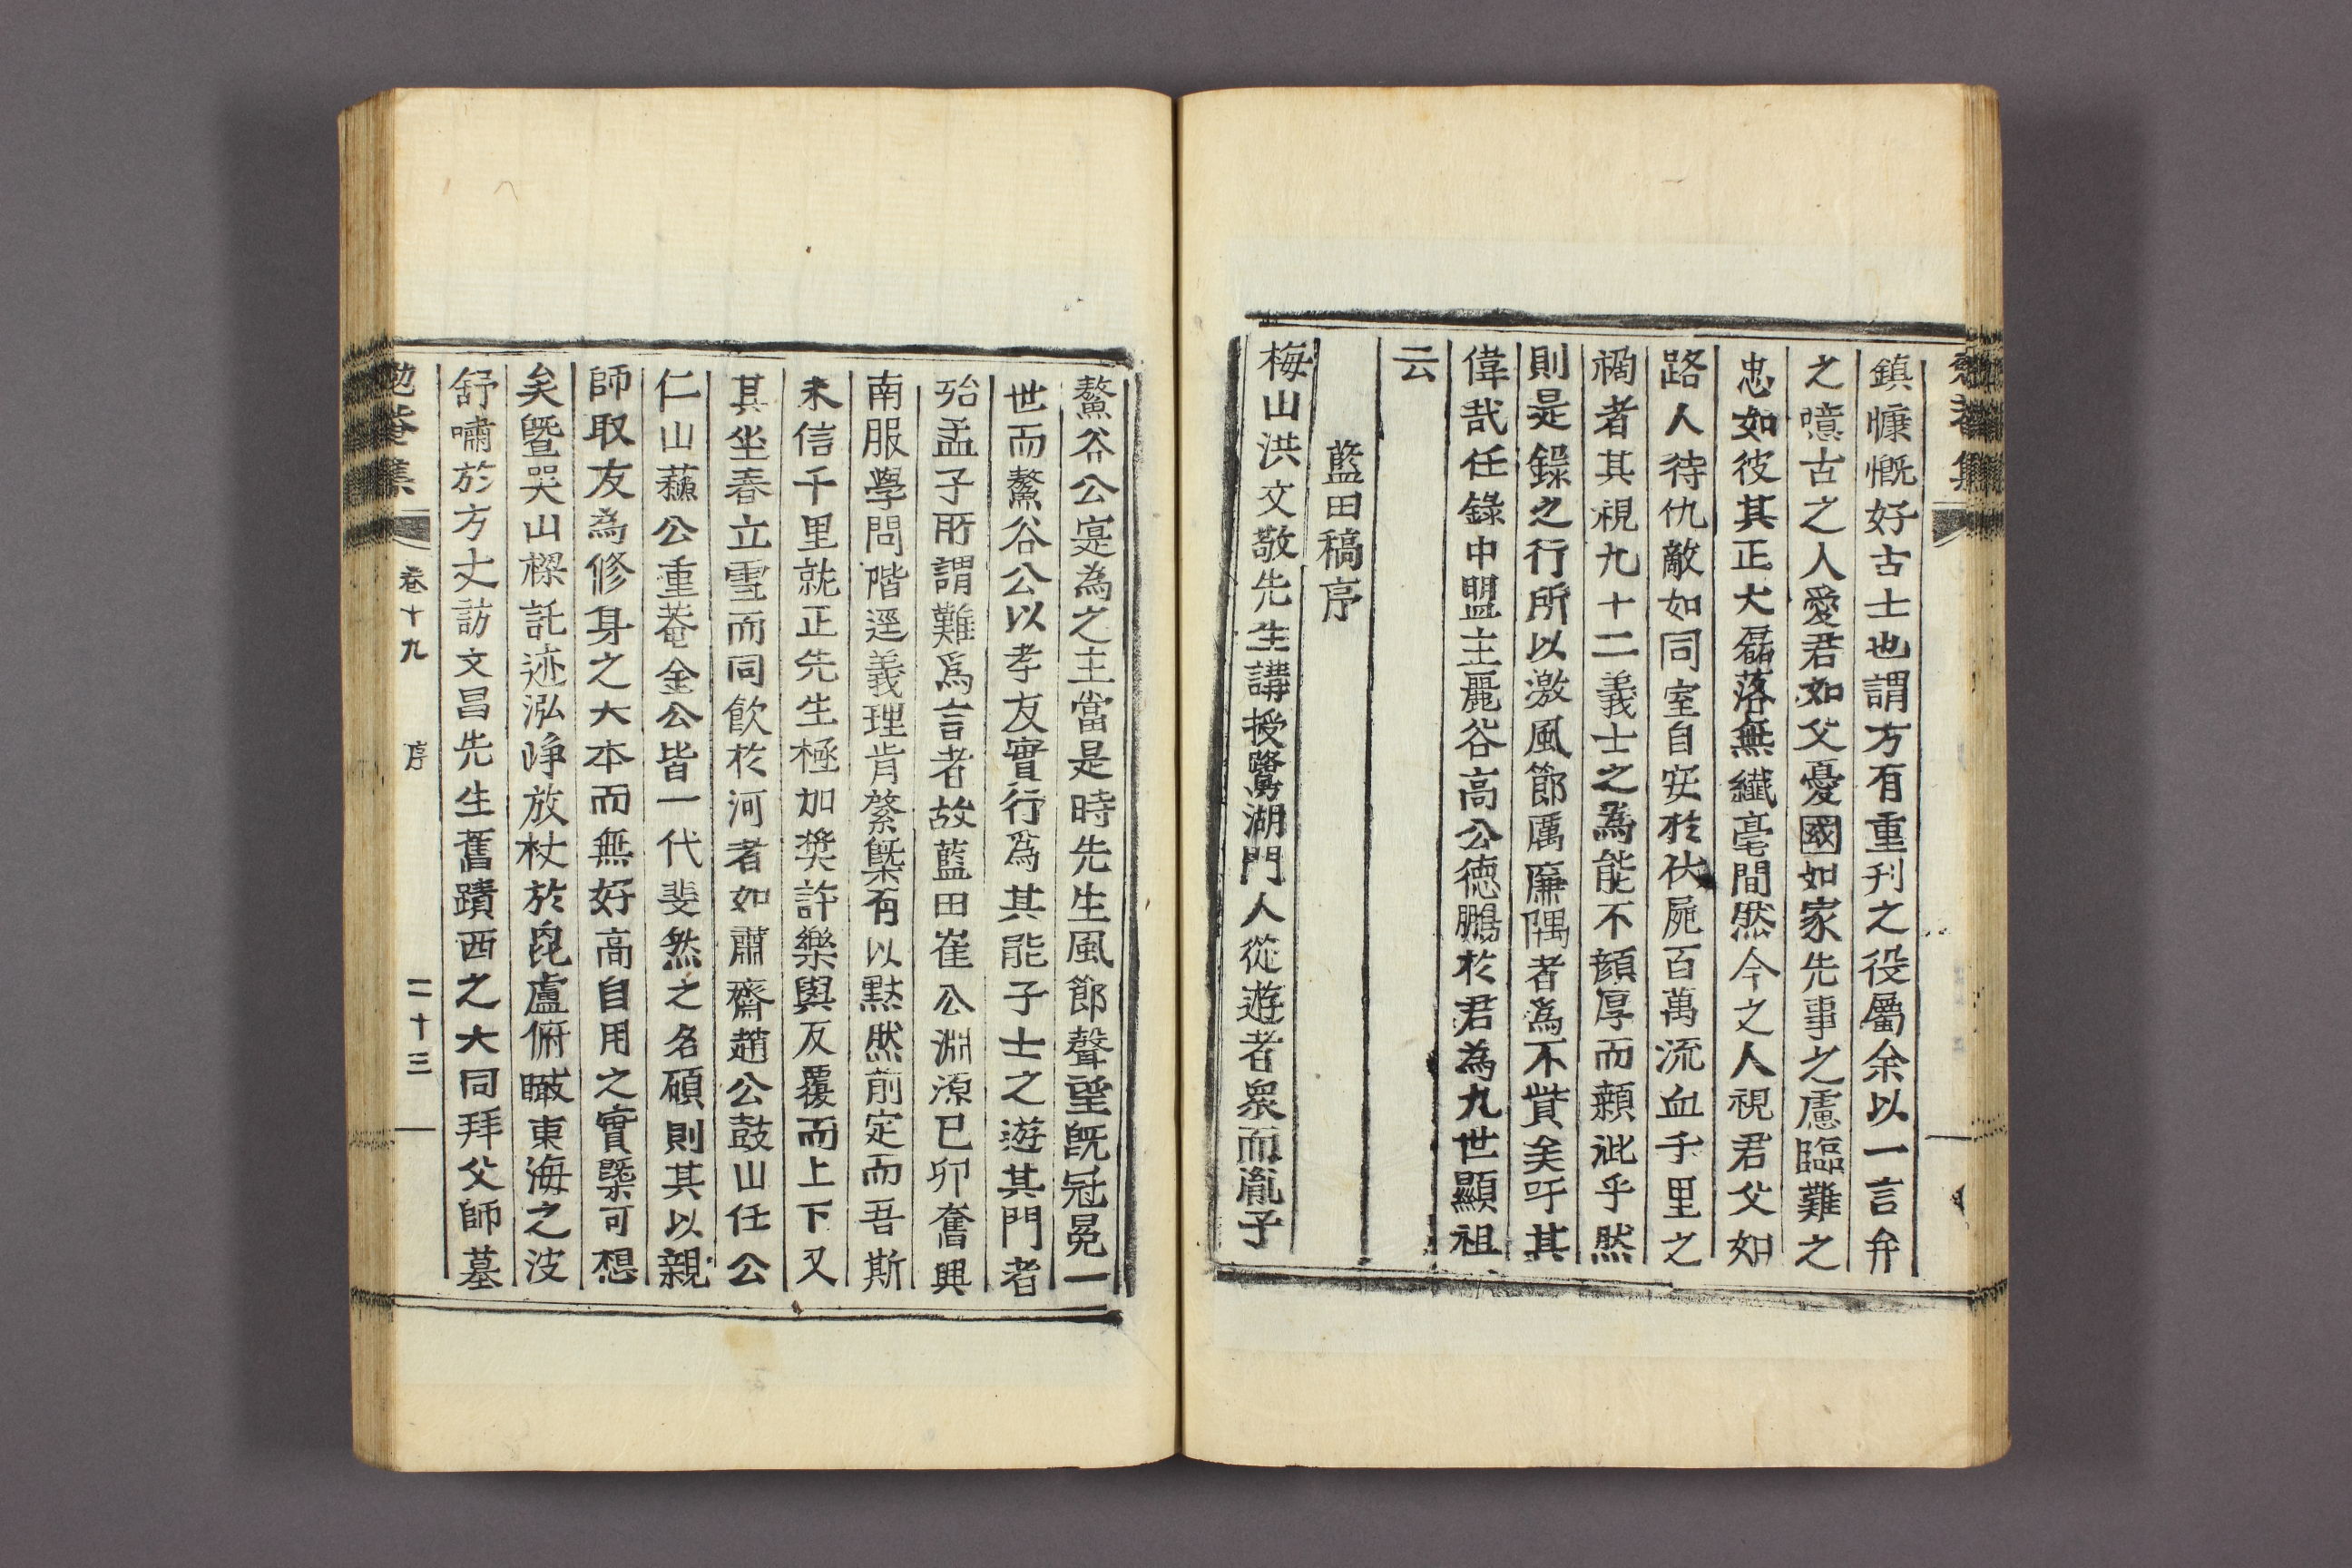 鎮慷慨好古士也謂方有重刋之役屬余以一言弁
之噫古之人愛君如父憂國如家先事之慮臨難之
忠如彼其正大磊落無纖毫間然今之人視君父如
路人待仇敵如同室自安於伏屍百萬流血千里之
禍者其視九十二義士之為能不顔厚而顙泚乎然
則是錄之行所以激風節厲廉隅者為不貲矣吁其
偉哉任錄中盟主麗谷高公德鵬於君為九世顯祖
云
藍田稿序
梅山洪文敬先生講授鷺湖門人從遊者衆而胤子
鰲谷公寔為之主當是時先生風節聲望旣冠冕一
世而鰲谷公以孝友實行為其能子士之遊其門者
殆孟子所謂難爲言者故藍田崔公淵源已卯奮興
南服學問階逕義理肯綮槩有以黙然前定而吾斯
未信千里就正先生極加奬許樂與反覆而上下又
其坐春立雪而同飮於河者如肅齋趙公鼓山任公
仁山蘇公重菴金公皆一代斐然之名碩則其以親
師取友為修身之大本而無好高自用之實槩可想
矣曁哭山樑託迹泓崢放杖於毘盧俯瞰東海之波
舒嘯於方丈訪文昌先生舊蹟西之大同拜父師墓
勉菴集 卷十九 序 二十三